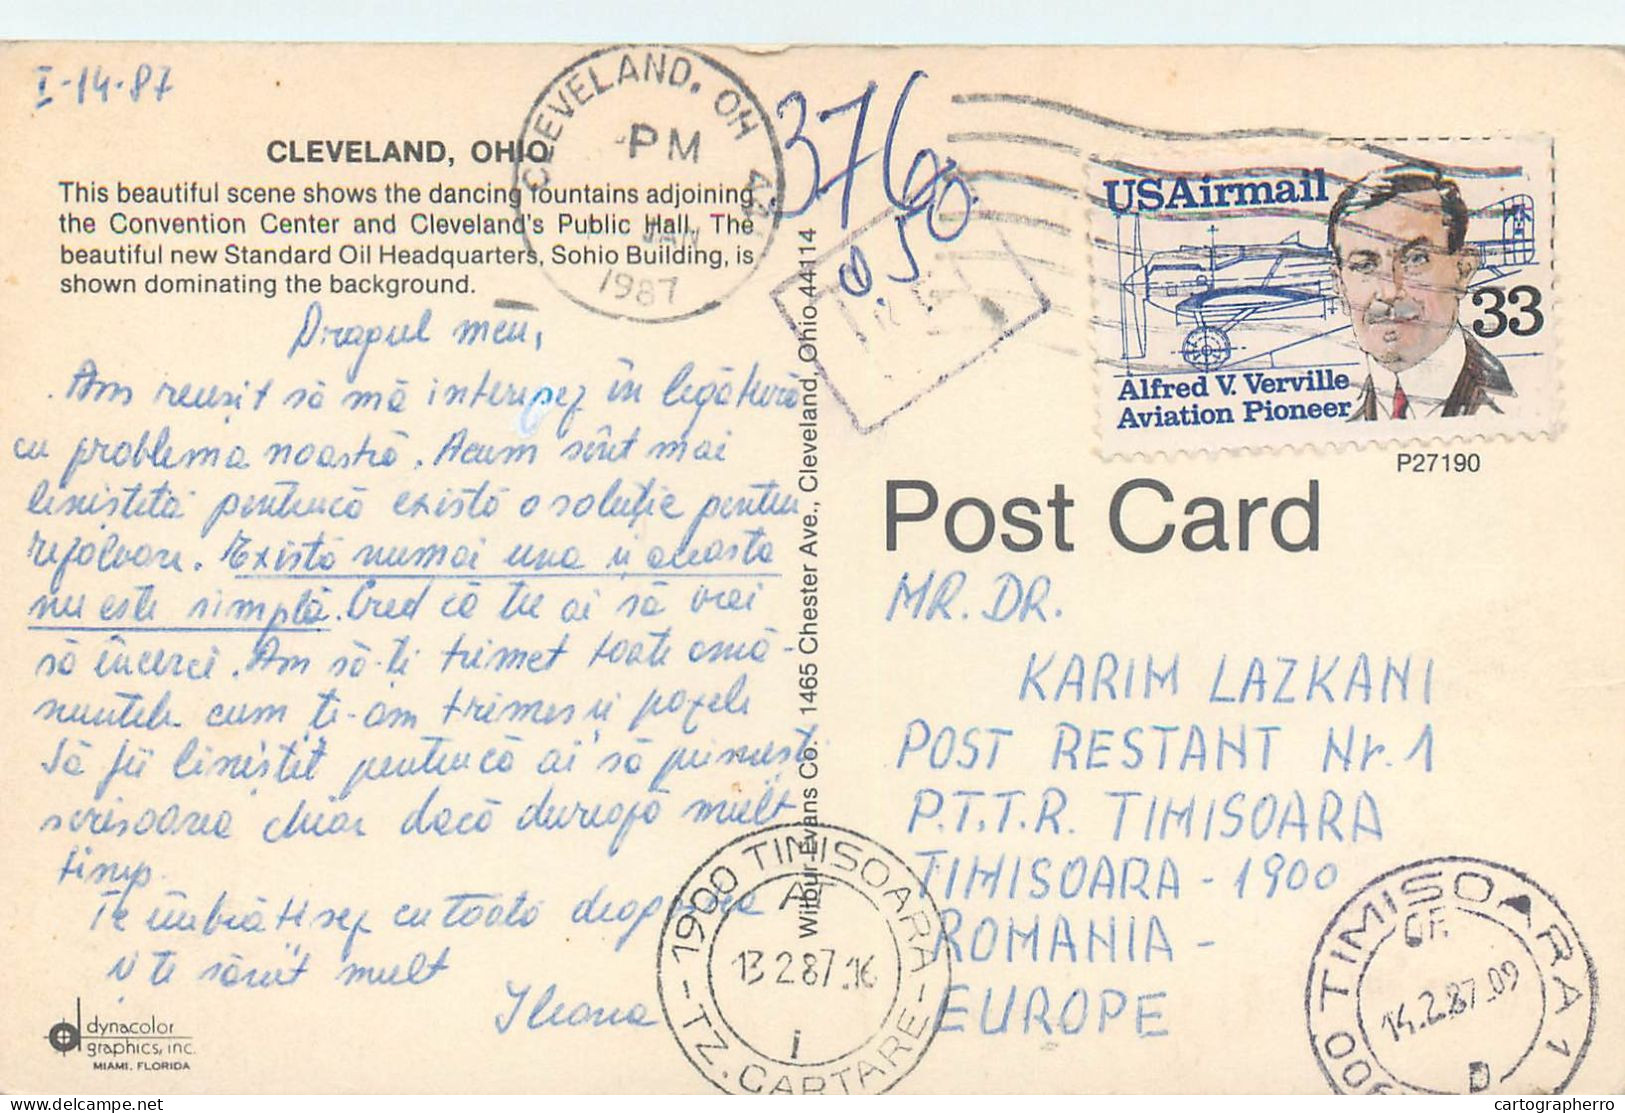 I-14-87
CLEVELAND, OHIO
This beautiful scene shows the dancing fountains adjoining
the Convention Center and Cleveland's Public Hall. The
beautiful new Standard Oil Headquarters, Sohio Building, is
shown dominating the background.
CLEVELAND, OH 441
PM
JAN
1987
376
0.50
USAirmail
33
Alfred V. Verville
Aviation Pioneer
P27190
Post Card
Dragul meu,
Am reusit să mă interesez în legătură
cu problema noastră. Acum sînt mai
linistită pentrucă există o soluție pentru
rezolvare. Există numai una și aceasta
nu este simplă. Cred că tu ai să vrei
să încerci. Am să-ti trimet toate amă-
nuntele cum ți-am trimes și pozele
Să fii linistit pentrucă ai să primesti
scrisoarea chiar dacă durează mult
timp.
Te îmbrătisez cu toată dragostea
și te sărut mult
Ileana
MR. DR.
KARIM LAZKANI
POST RESTANT Nr. 1
P.T.T.R. TIMISOARA
TIMISOARA - 1900
ROMANIA -
EUROPE
Wilbur Evans Co. 1465 Chester Ave., Cleveland, Ohio 44114
1900 TIMISOARA
13.2.87.16
TZ. CARTARE
1900 TIMISOARA 1
OF.
14.2.87.09
D
dynacolor
graphics, inc.
MIAMI, FLORIDA
delcampe.net
cartographerro